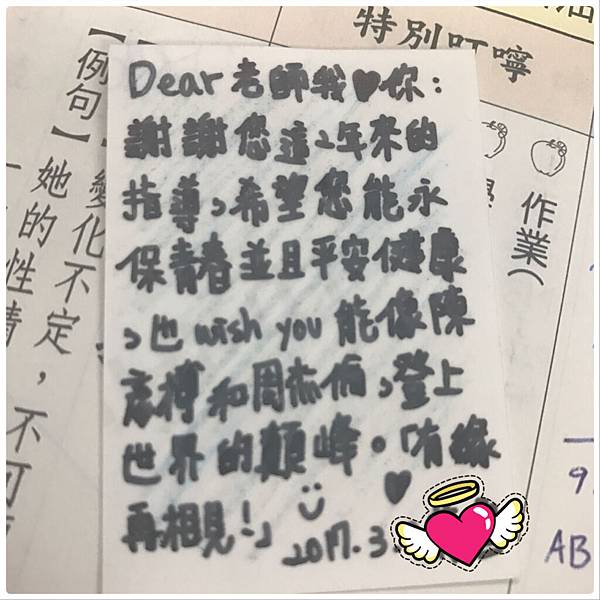 特別叮嚀
作業(
【例句】變化不定,
她的性情,不可
Dear 老師我♥你:
謝謝您這2年來的
指導,希望您能永
保青春並且平安健康
,也 wish you 能像陳
彥博和周杰倫,登上
世界的顛峰。「有緣
再相見!」
2017.3
9.
AB